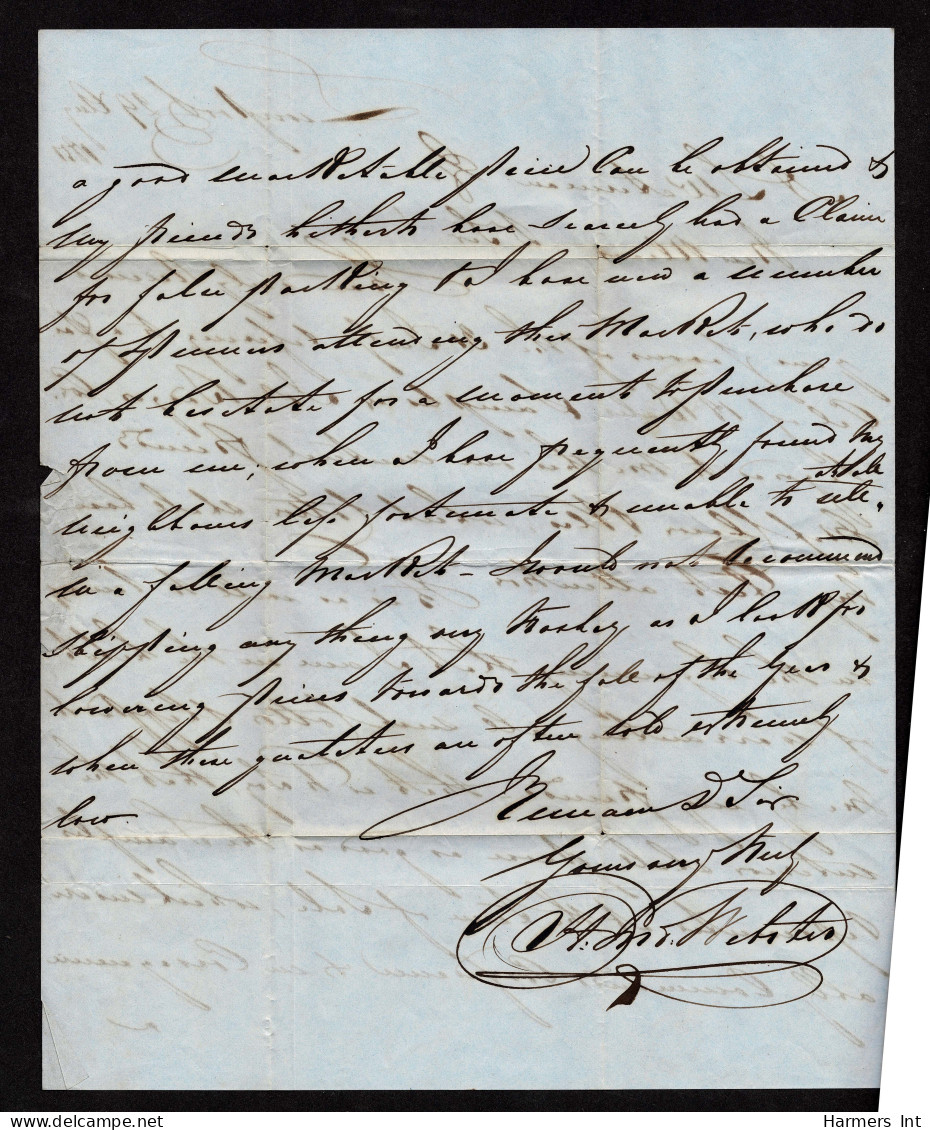 a good marketable price Can be obtained &
my friends hitherto have scarcely had a Claim
for false packing I have now a number
of Spinners attending this Market, who do
not hesitate for a moment to purchase
from me, when I have frequently found my
neighbours less fortunate & unable to sell
at all
in a falling Market – I would not recommend
Shipping any thing very trashy as I look for
lowering prices towards the fall of the Year &
when these qualities are often sold extremely
low.
I Remain D Sir
Yours very truly
Webster
Harmers Int